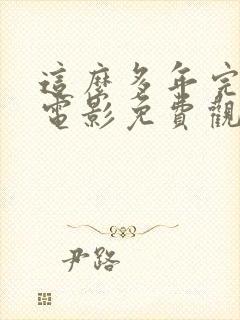 這麼多年完
電影免費觀
尹路